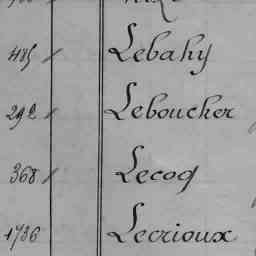 485 Lebahy
292 Leboucher
368 Lecoq
1736 Lecrioux